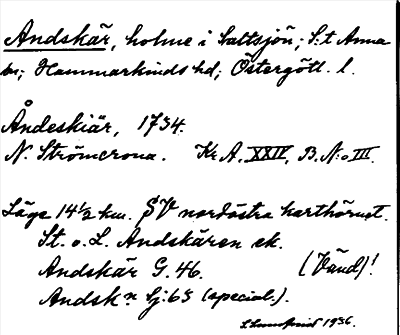 Andskär, holme i Saltsjön; S:t Anna
sn; Hammarkinds hd; Östergötl. l.
Åndeskiär, 1734.
N. Strömcrona. Kr A. XXIV, B. N:o III.
Läge 14½ km. SV nordöstra karthörnet.
St. o. L. Andskären ek.
Andskär G. 46.
(Vänd)!
Andsk.n Sj: 65 (special.).
1936.